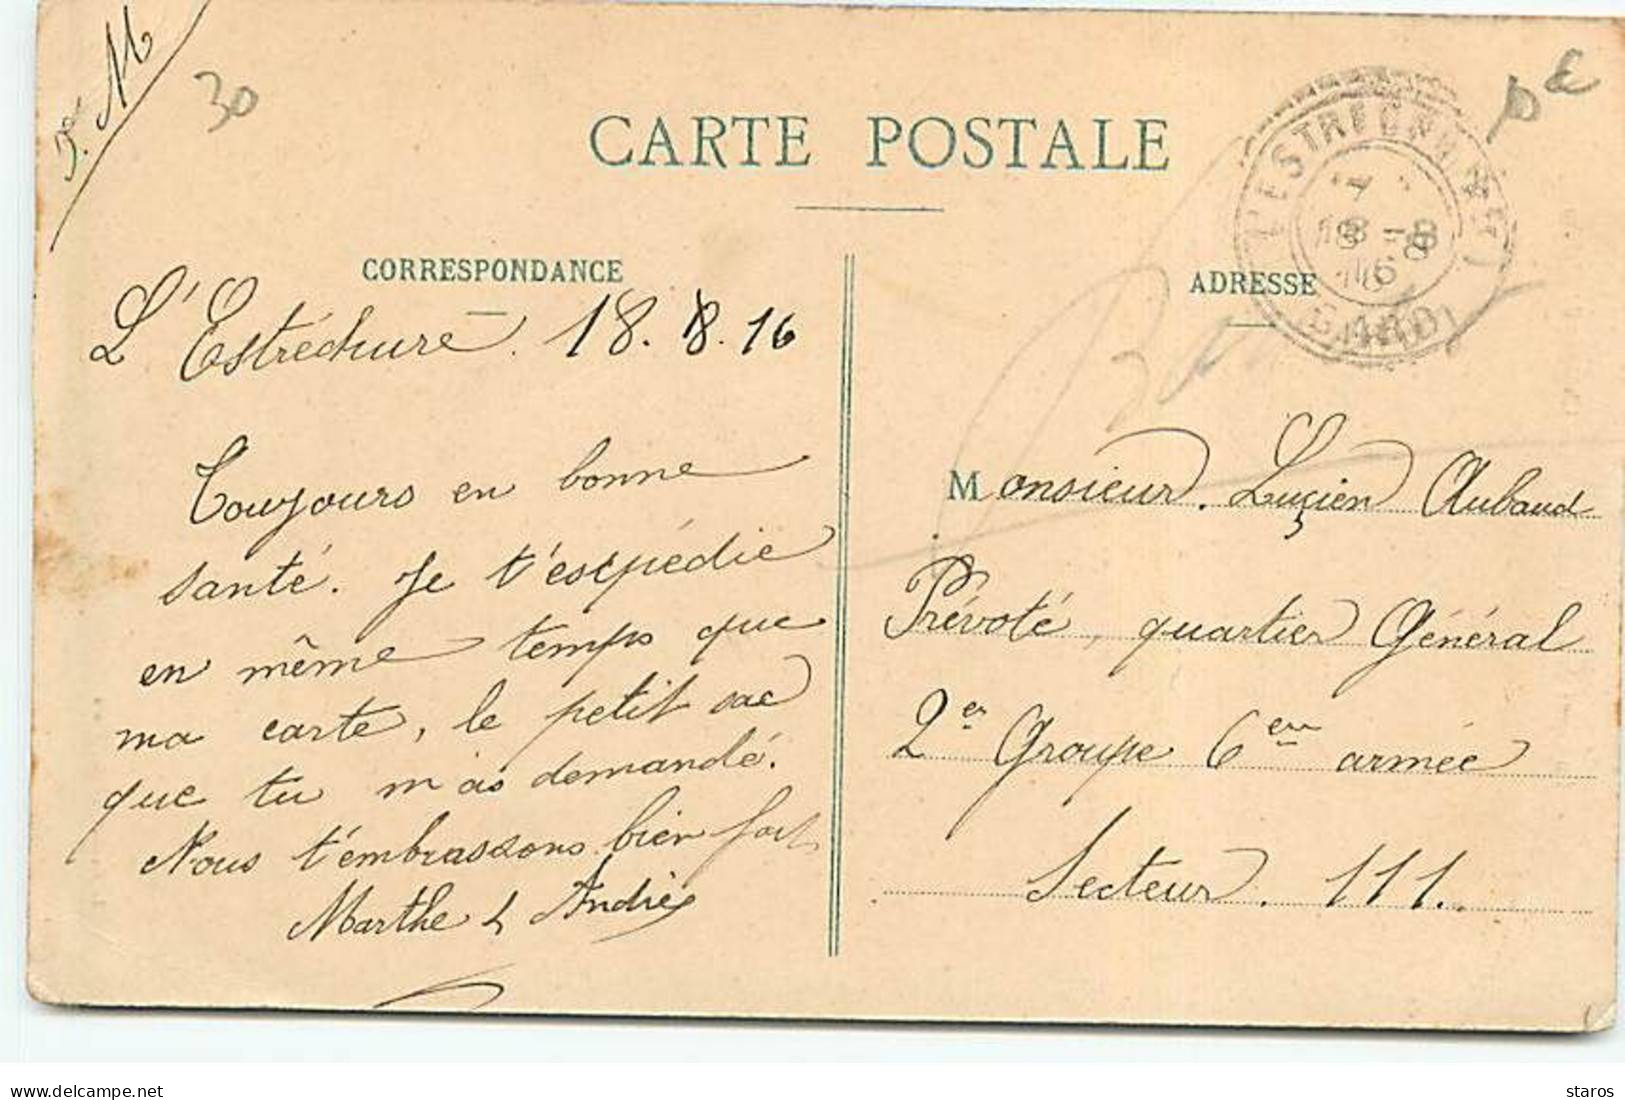 Fse M
30
CARTE POSTALE
L'ESTRÉCHURE
18 - 8
16
(GARD)
CORRESPONDANCE
L'Estréchure. 18. 8. 16
Toujours en bonne
santé. Je t'expédie
en même temps que
ma carte, le petit sac
que tu m'as demandé.
Nous t'embrassons bien fort
Marthe & Andrée
ADRESSE
Monsieur. Lucien Aubaud
Prévoté, quartier Général
2er Groupe 6em armée
Secteur. 111.
Delcampe.net
staros